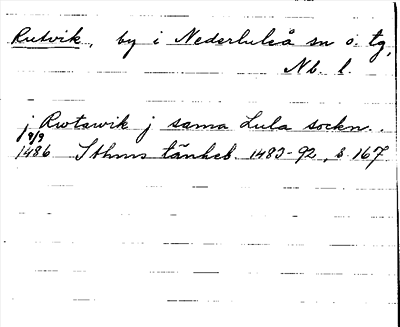 Rutvik, by i Nederluleå sn o. tg,
Nb. l.
j Rwtawik j sama Lula sockn..
9/9
1486 Sthms tänkeb. 1483-92, s 167